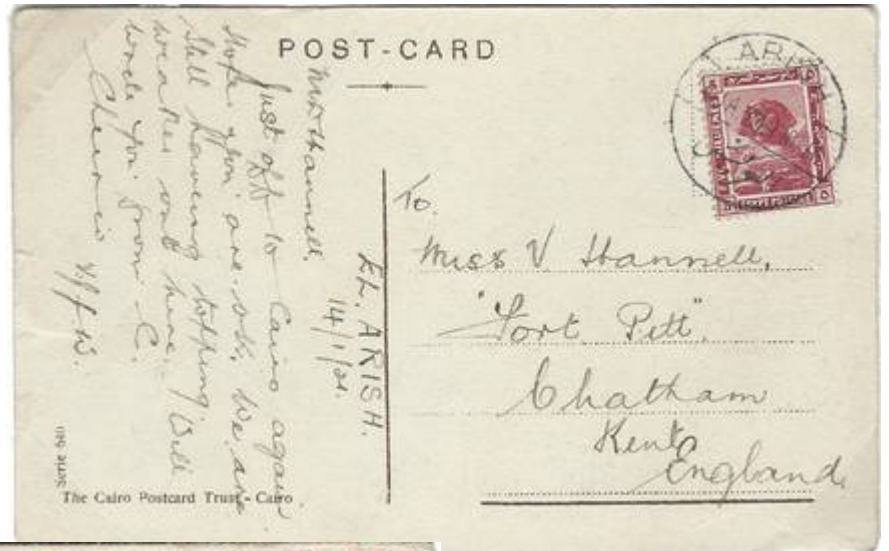 POST-CARD
EL. ARISH.
14/1/21.
Hannell.
Just off to Cairo again.
Hope you are O.K. We are
still having topping
weather out here. Will
write you from C.
Cheerio V.J.W.
To.
Miss V Hannell,
"Fort Pitt",
Chatham
Kent
England
EL ARISH
Serie 640
The Cairo Postcard Trust - Cairo